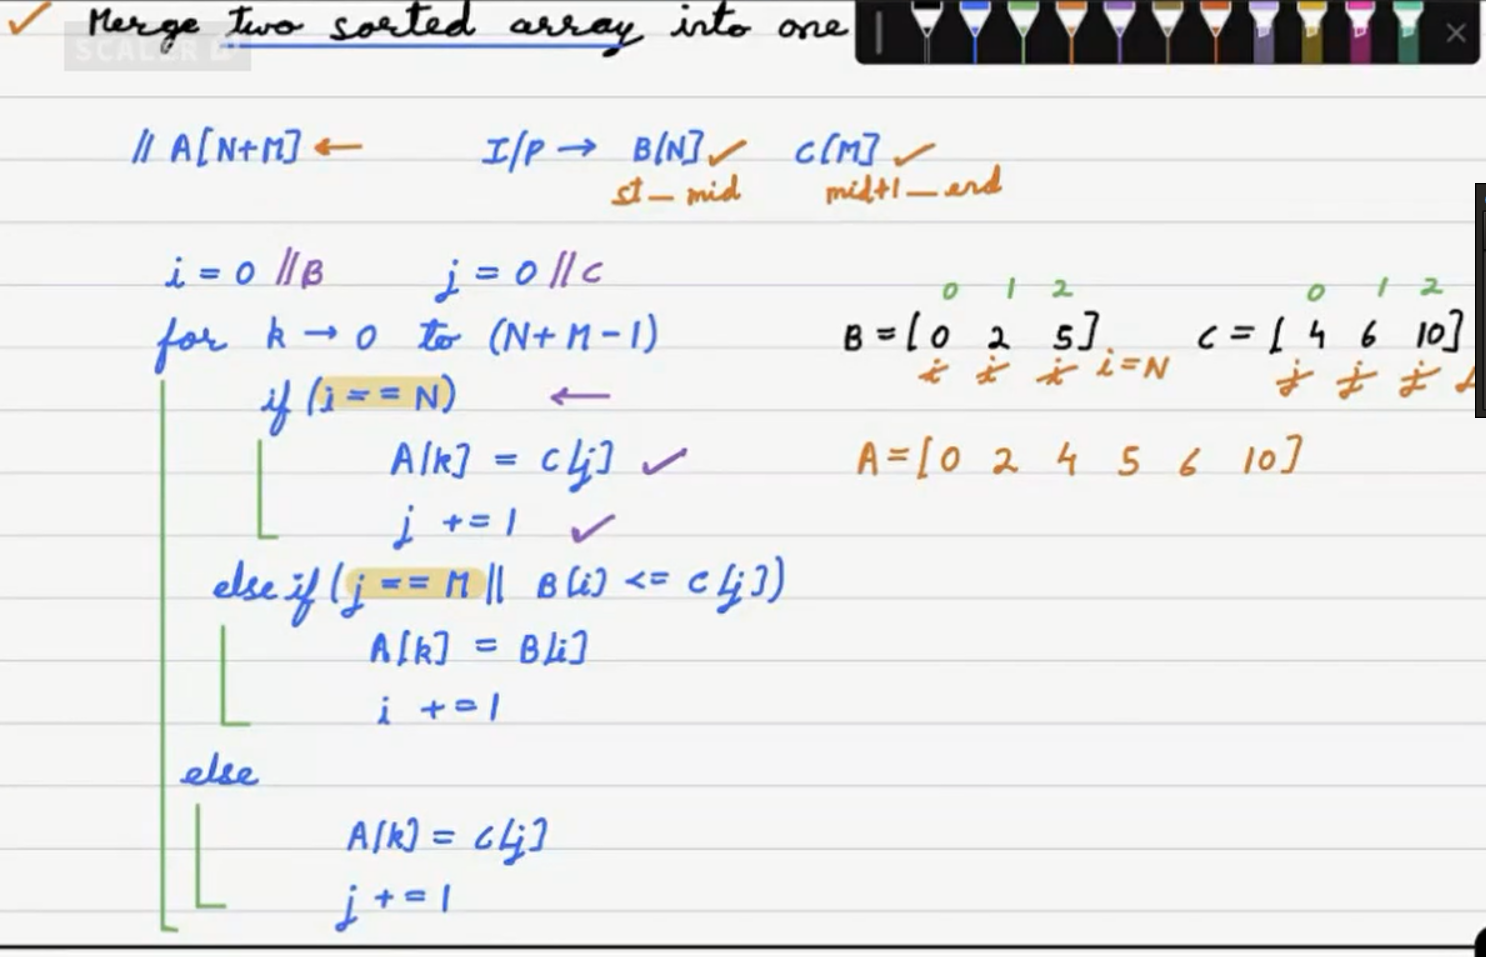 ✓ Merge two sorted array into one
SCALER
// A[N+M] ← I/P → B[N] ✓ C[M] ✓
st — mid mid+1 — end
i = 0 // B j = 0 // C
for k → 0 to (N+M-1)
if (i == N) ←
A[k] = C[j] ✓
j += 1 ✓
else if (j == M || B[i] <= C[j])
A[k] = B[i]
i += 1
else
A[k] = C[j]
j += 1
0 1 2 0 1 2
B = [0 2 5] C = [4 6 10]
i i i i=N j j j
A = [0 2 4 5 6 10]